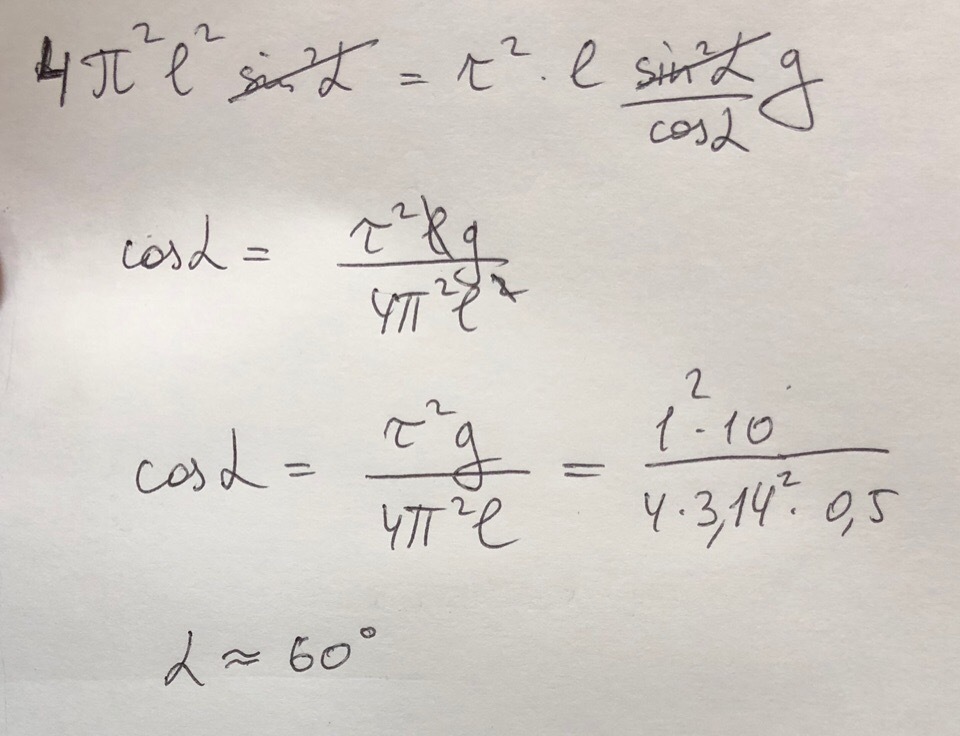 4π² ℓ² sin²α = τ² · ℓ sin²α/cosα g
cosα = τ²ℓg / 4π²ℓ²
cosα = τ²g / 4π²ℓ = 1²·10 / 4·3,14²· 0,5
α ≈ 60°